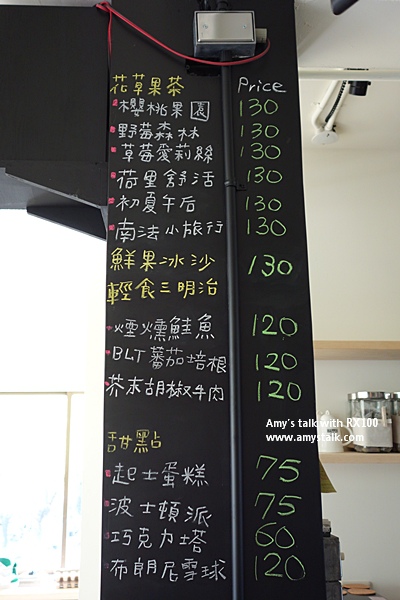 花草果茶 Price
櫻桃果園 130
野莓森林 130
草莓愛莉絲 130
荷里舒活 130
初夏午后 130
南法小旅行 130
鮮果冰沙 130
輕食三明治
煙燻鮭魚 120
BLT蕃茄培根 120
芥末胡椒牛肉 120
Amy's talk with RX100
www.amystalk.com
甜點
起士蛋糕 75
波士頓派 75
巧克力塔 60
布朗尼雪球 120